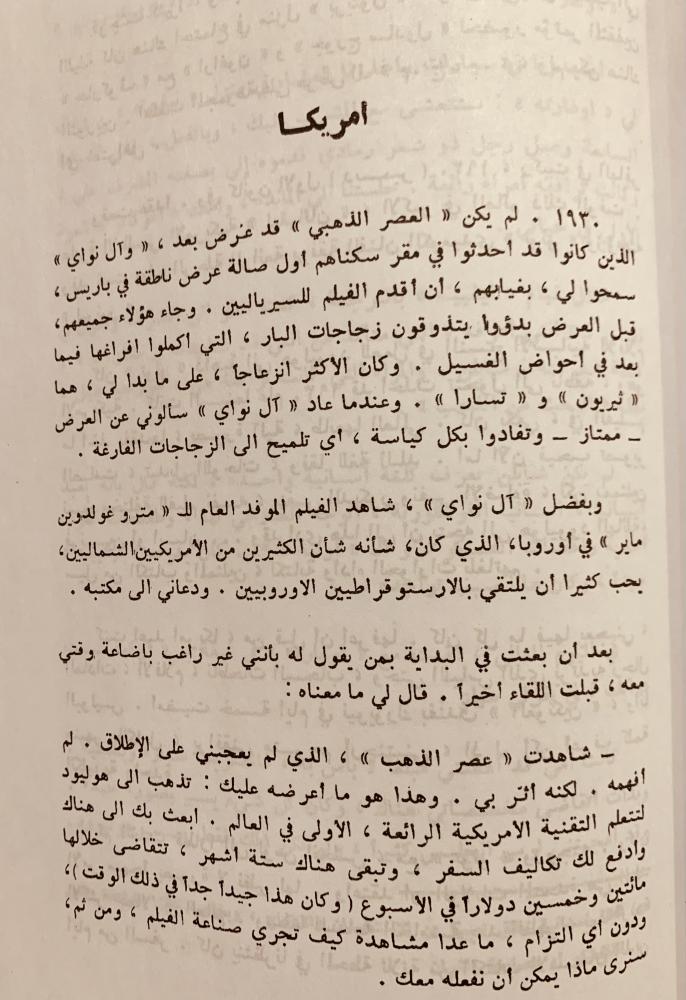 امريكا
١٩٣٠ . لم يكن « العصر الذهبي » قد عرض بعد ، « وآل نواي »
الذين كانوا قد أحدثوا في مقر سكناهم أول صالة عرض ناطقة في باريس ،
سمحوا لي ، بغيابهم ، أن أقدم الفيلم للسيرياليين . وجاء هؤلاء جميعهم،
قبل العرض بدؤوا يتذوقون زجاجات البار ، التي اكملوا افراغها فيما
بعد في أحواض الغسيل . وكان الأكثر انزعاجاً ، على ما بدا لي ، هما
« ثيريون » و « تسارا » . وعندما عاد « آل نواي » سألوني عن العرض
ـ ممتاز ـ وتفادوا بكل كياسة ، أي تلميح الى الزجاجات الفارغة .
وبفضل « آل نواي » ، شاهد الفيلم الموفد العام للـ « مترو غولدوين
ماير » في أوروبا، الذي كان، شأنه شأن الكثيرين من الأمريكيين الشماليين،
يحب كثيرا أن يلتقي بالارستوقراطيين الاوروبيين . ودعاني الى مكتبه .
بعد أن بعثت في البداية بمن يقول له بأنني غير راغب باضاعة وقتي
معه ، قبلت اللقاء أخيراً . قال لي ما معناه :
ـ شاهدت « عصر الذهب » ، الذي لم يعجبني على الإطلاق . لم
أفهمه . لكنه أثّر بي . وهذا هو ما أعرضه عليك : تذهب الى هوليود
لتتعلم التقنية الأمريكية الرائعة ، الأولى في العالم . ابعث بك الى هناك
وادفع لك تكاليف السفر ، وتبقى هناك ستة أشهر ، تتقاضى خلالها
مائتين وخمسين دولاراً في الأسبوع ( وكان هذا جيداً جداً في ذلك الوقت )،
ودون أي التزام ، ما عدا مشاهدة كيف تجري صناعة الفيلم ، ومن ثم،
سنرى ماذا يمكن أن نفعله معك .